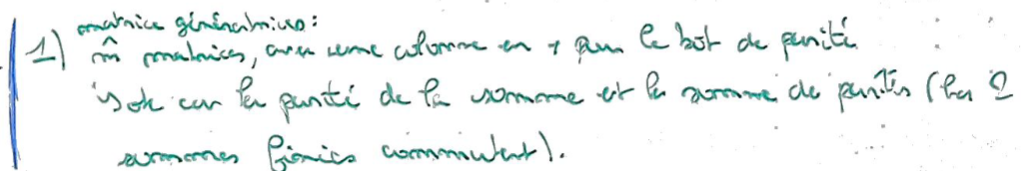 matrice génératrices :
1) m̂ matrices, avec une colonne en + pour le bit de parité
ok car la parité de la somme est la somme de parités (les 2
sommes finies commutent).